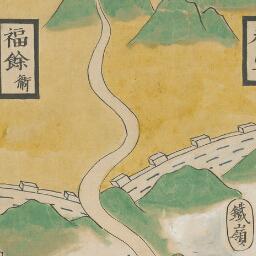 福餘衛
鐵嶺